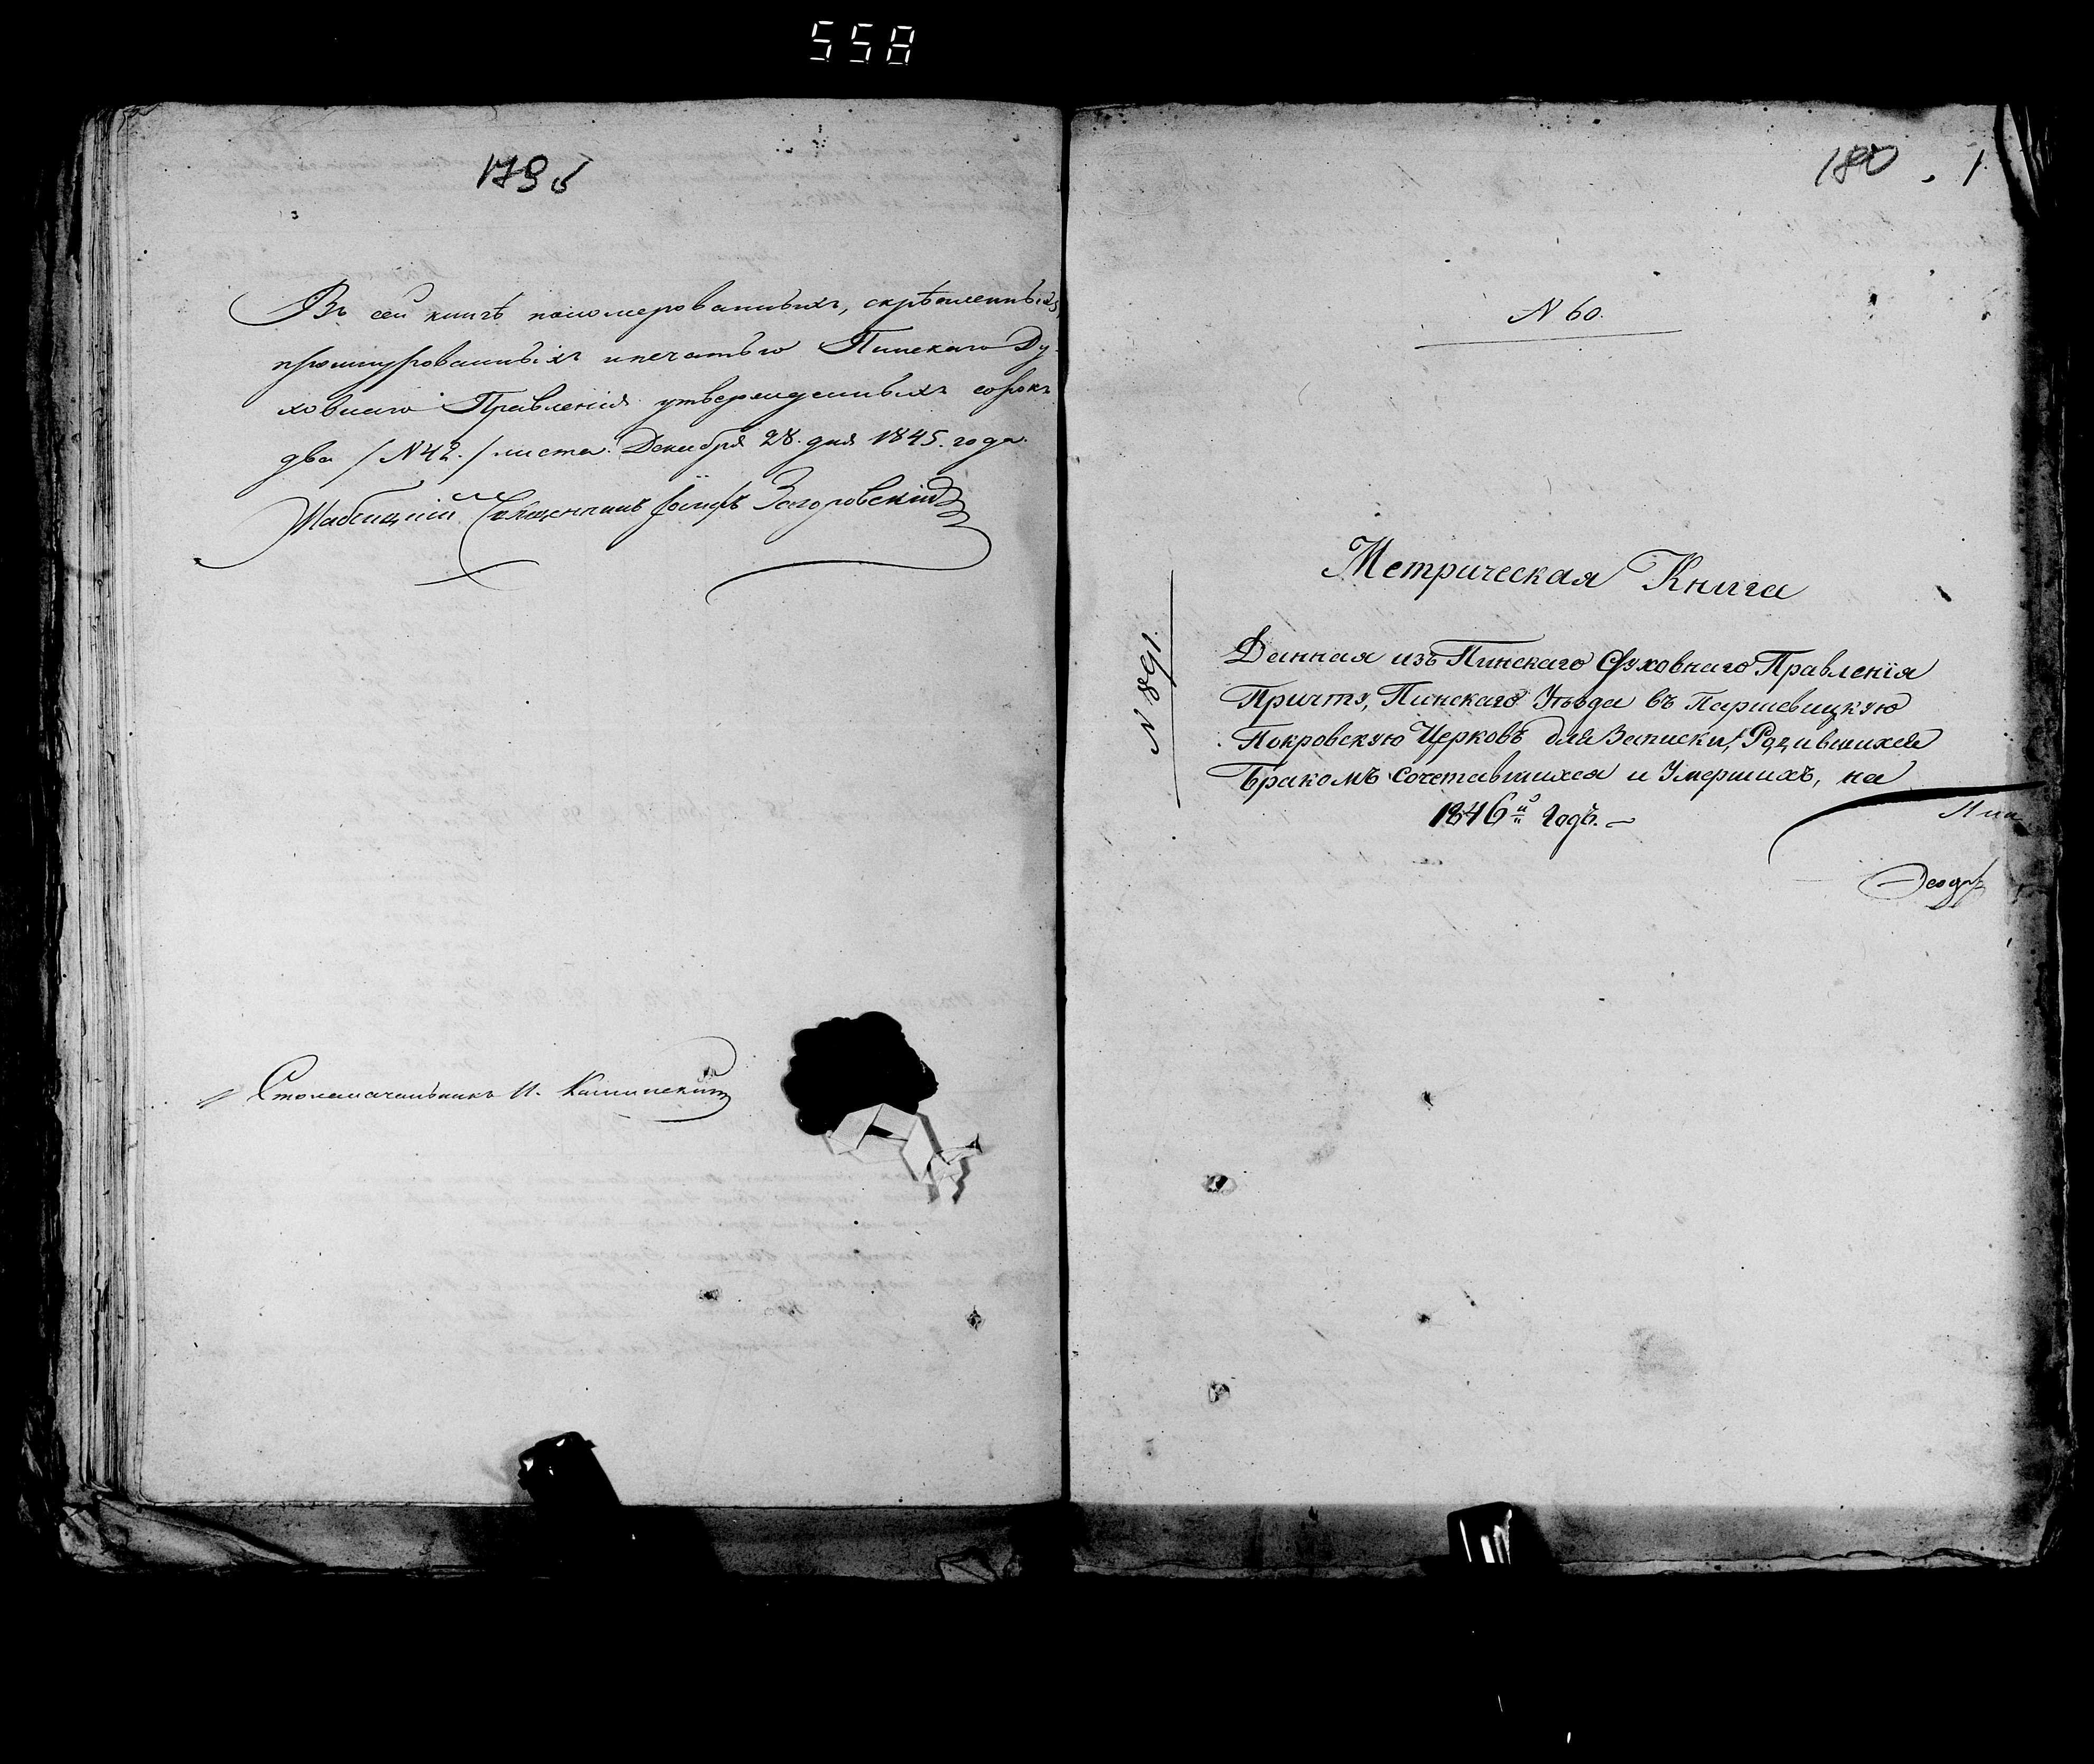 558
179 б
Въ сей книгѣ пономерованныхъ, скрѣпленныхъ,
прошнурованныхъ и печатью Пинскаго Ду-
ховнаго Правленія утвержденныхъ сорокъ
два / N 42. / листа. Декабря 28. дня 1845. года.
Священникъ Іосифъ
Столоначальникъ И.
180 . 1
N 60.
N 891.
Метрическая Книга
Данная изъ Пинскаго Духовнаго Правленія
Причту, Пинскаго Уѣзда въ Паршевицкую
Покровскую Церковь для Записки, Родившихся
Бракомъ Сочетавшихся и Умершихъ, на
1846й Годъ.